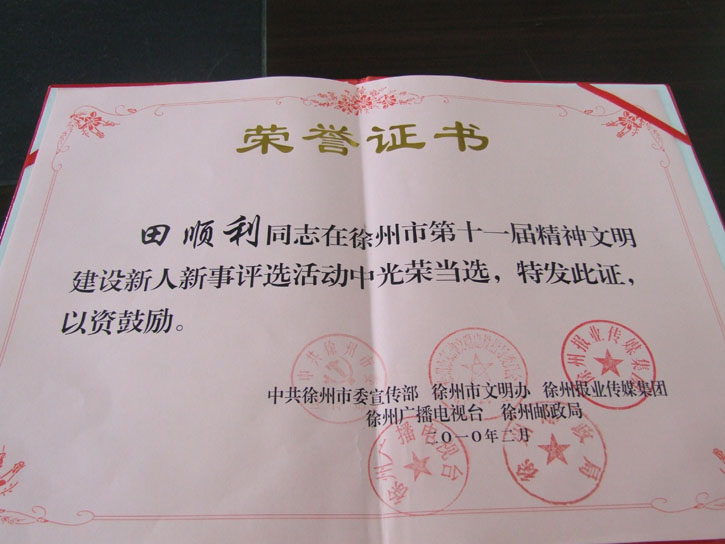 荣誉证书
田顺利同志在徐州市第十一届精神文明
建设新人新事评选活动中光荣当选，特发此证，
以资鼓励。
中共徐州市委宣传部 徐州市文明办 徐州报业传媒集团
徐州广播电视台 徐州邮政局
二〇一〇年二月
徐州报业传媒集团
徐州广播电视台